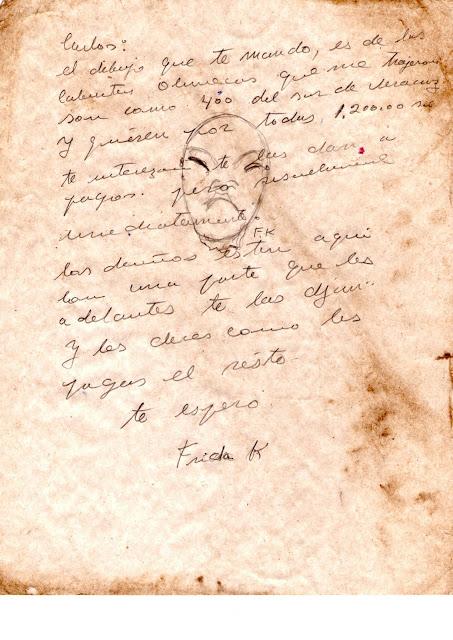 Carlos:
el dibujo que te mando, es de las
cabesitas Olmecas que me trajeron
son como 400 del sur de Veracruz
y quieren por todas 1,200.00 si
te interezan te las dan a
pagos. pero resuelveme
inmediatamente.
F.K
los dueños estan aqui
con una parte que les
adelantes te las dejan..
Y les dices como les
pagas el resto.
te espero.
Frida K